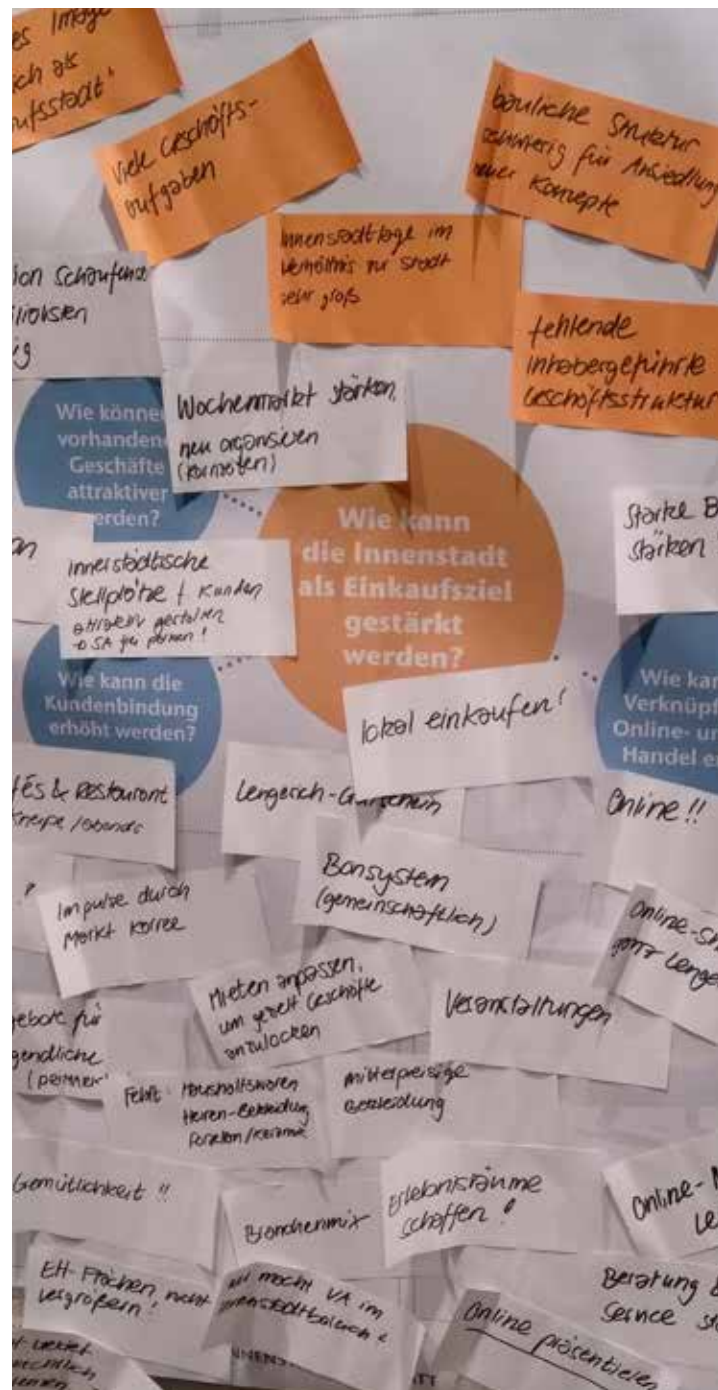 es Image
ich als
ufsstadt"
Viele Geschäfts-
aufgaben
bauliche Struktur
schwierig für Ansiedlung
neuer Konzepte
Innenstadtlage im
Verhältnis zur Stadt
sehr groß
fehlende
Inhabergeführte
Geschäftsstruktur
ion Schaufens
Wochenmarkt stärken,
neu organisieren
Wie könne
vorhanden
Geschäfte
attraktiver
erden?
Wie kann
die Innenstadt
als Einkaufsziel
gestärkt
werden?
Starke B
stärken
innerstädtische
Stellplätze f Kunden
attraktiv gestalten
Wie kann die
Kundenbindung
erhöht werden?
lokal einkaufen!
Wie kan
Verknüpf
Online- un
Handel e
fés & Restaurant
Kneipe / abends
Lengerich-Gutschein
Online!!
Bonsystem
(gemeinschaftlich)
Impulse durch
Markt Karree
Online-Sh
ganz Lenge
Mieten anpassen,
um gezielt Geschäfte
anzulocken
Veranstaltungen
gebote für
gendliche
Fehlt: Haushaltswaren
Herren-Bekleidung
Porzellan/Keramik
mittelpreisige
Bekleidung
Gemütlichkeit!!
Branchenmix
Erlebnisräume
schaffen!
Online-
Le
EH-Flächen nicht
vergrößern!
macht VA im
nenstadtbereich?
Beratung &
Service st
Online präsentieren
NNENS